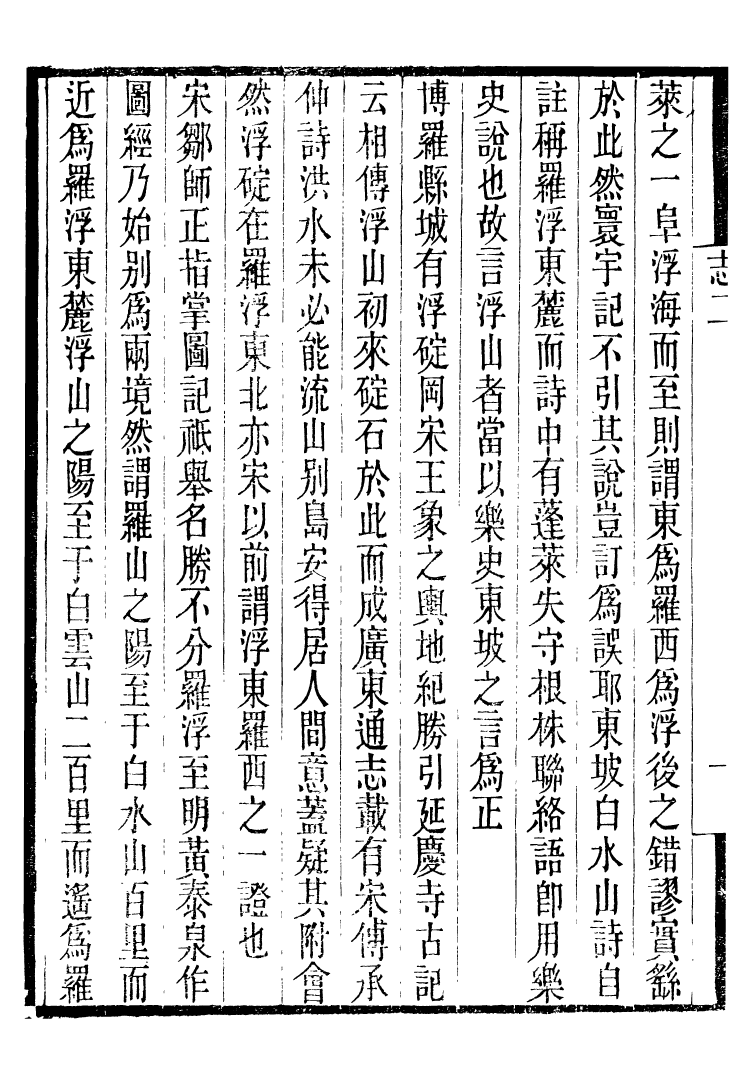 志二
一
萊之一阜浮海而至則謂東爲羅西爲浮後之錯謬實繇
於此然寰宇記不引其說豈訂爲誤耶東坡白水山詩自
註稱羅浮東麓而詩中有蓬萊失守根株聯絡語卽用樂
史說也故言浮山者當以樂史東坡之言爲正
博羅縣城有浮碇岡宋王象之輿地紀勝引延慶寺古記
云相傳浮山初來碇石於此而成廣東通志載有宋傅承
仲詩洪水未必能流山别島安得居人間意蓋疑其附會
然浮碇在羅浮東北亦宋以前謂浮東羅西之一證也
宋鄒師正指掌圖記祇舉名勝不分羅浮至明黃泰泉作
圖經乃始别爲兩境然謂羅山之陽至于白水山百里而
近爲羅浮東麓浮山之陽至于白雲山二百里而遙爲羅